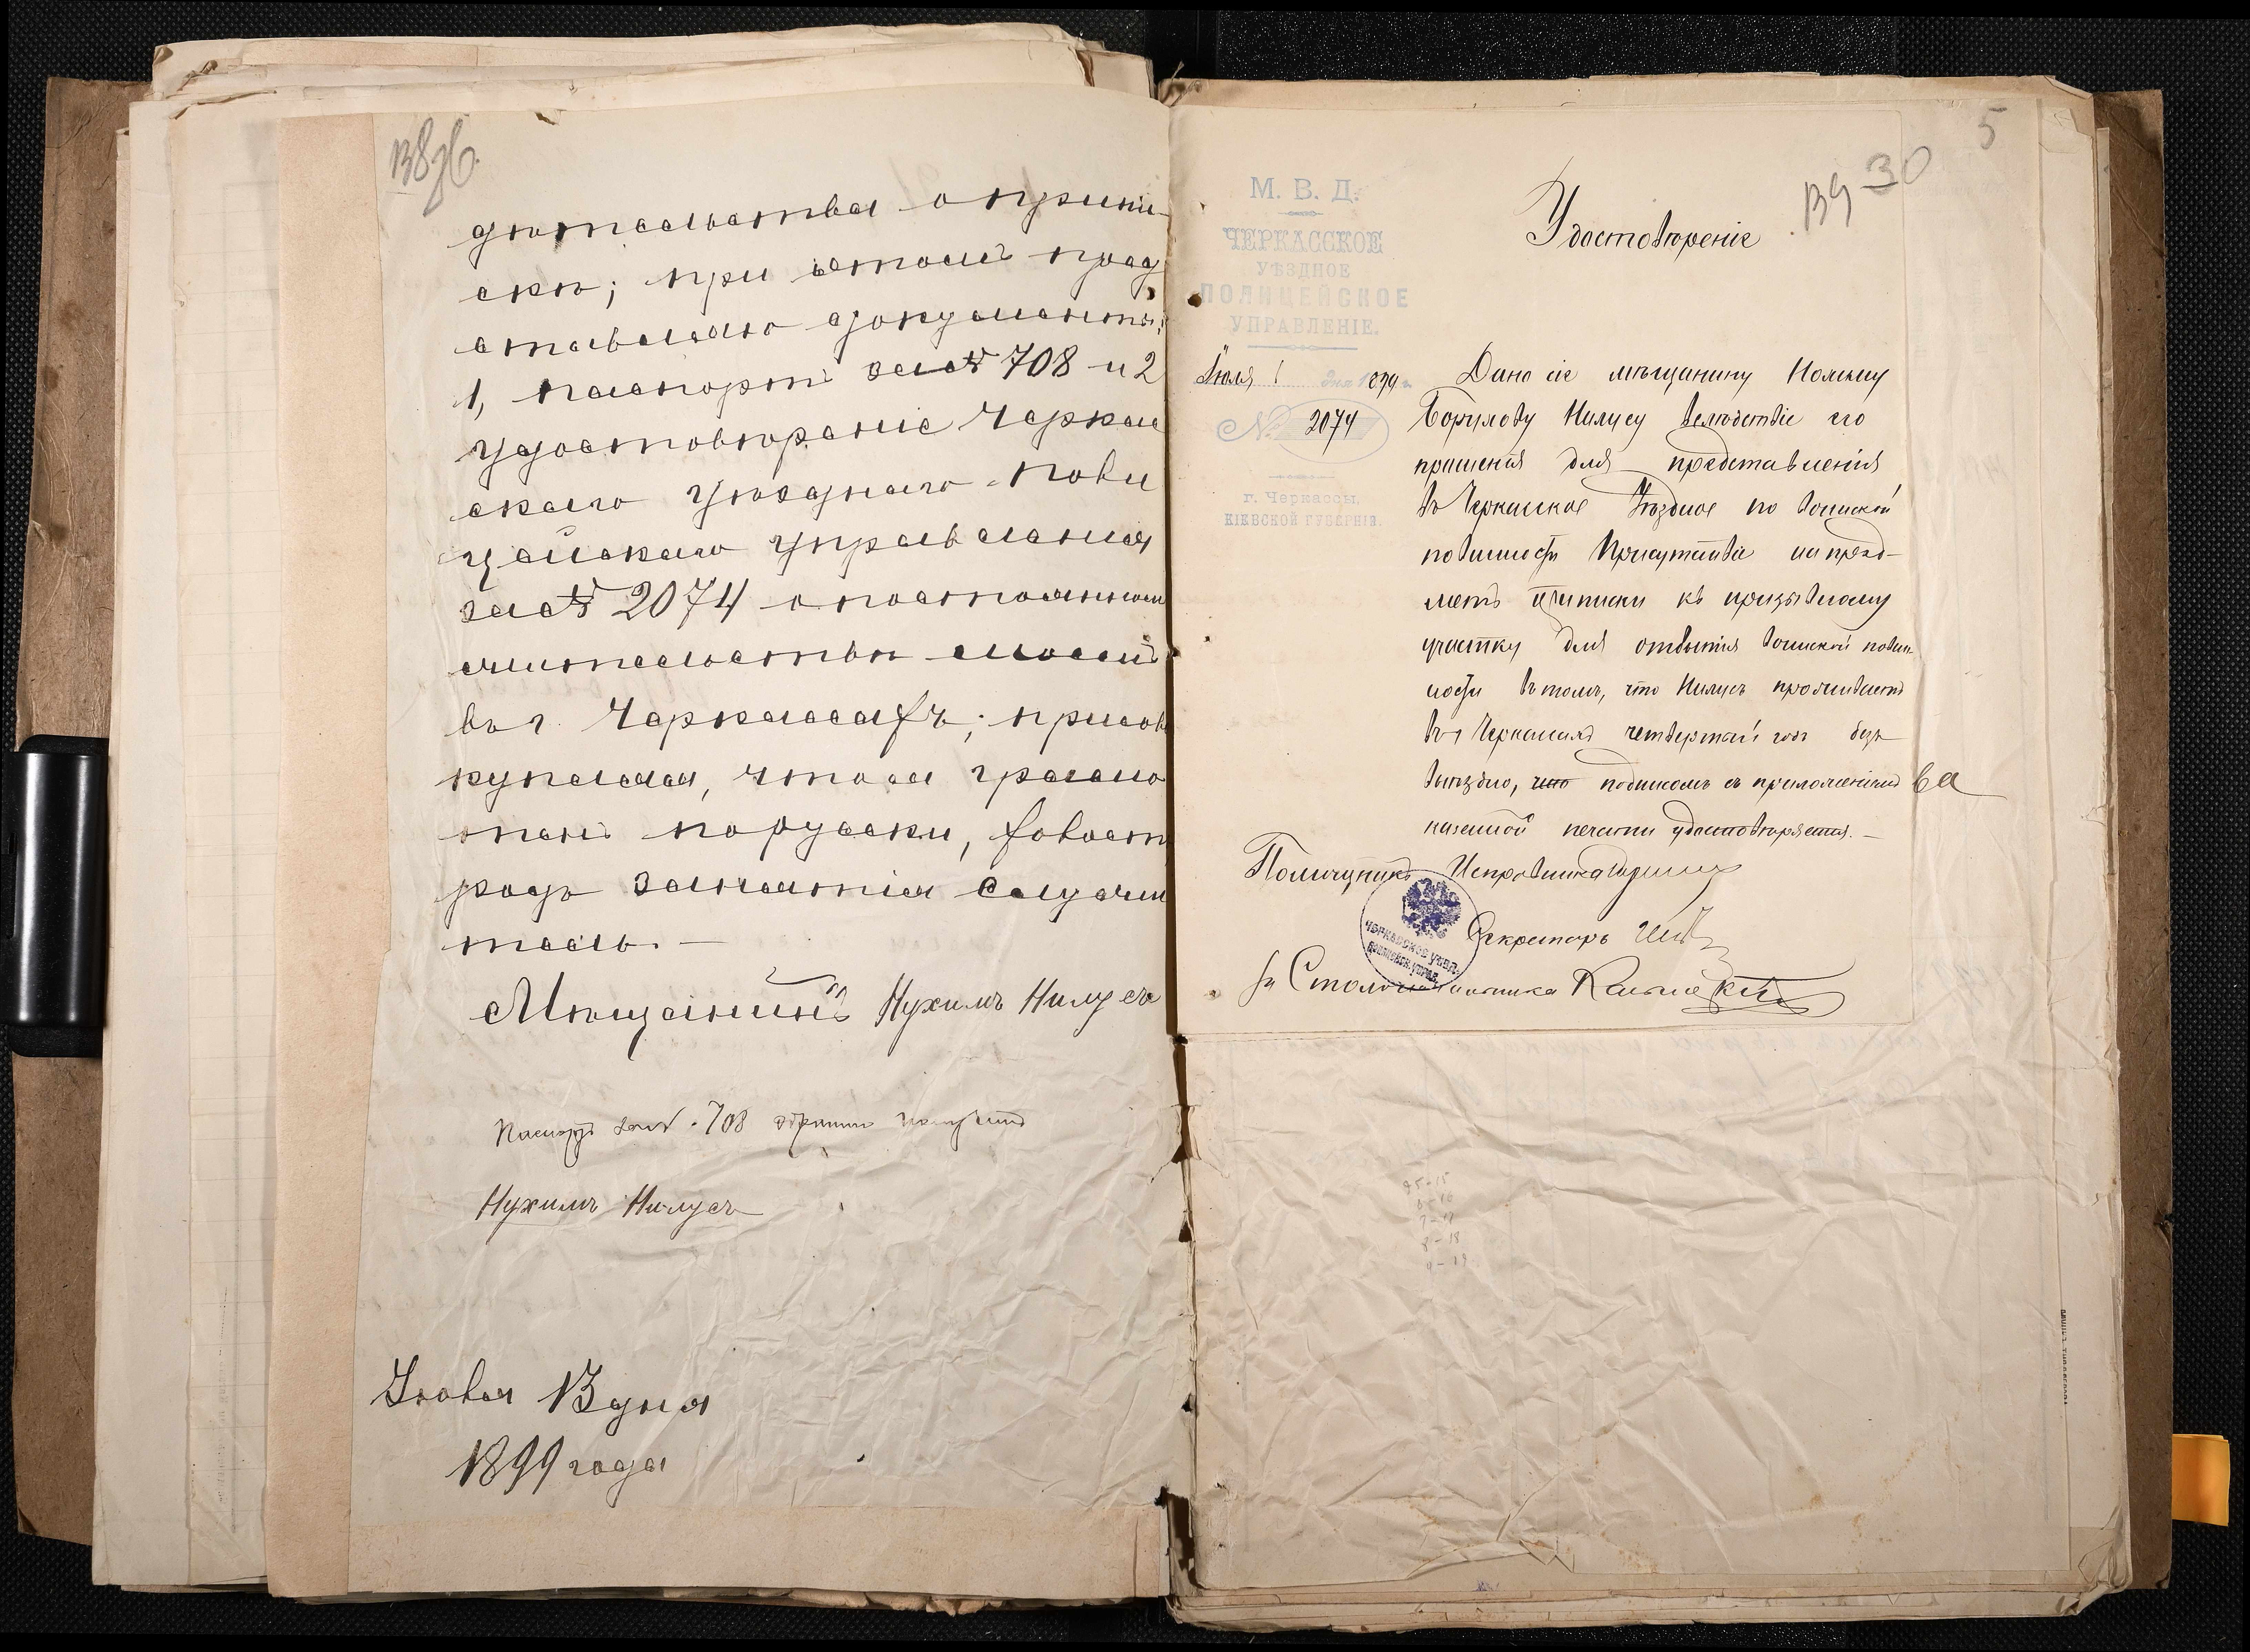 138 об.
дѣтельства о припи-
скѣ; при этомъ пред
ставляю документы;
1, паспортъ за № 708 и 2
удостовѣреніе Черкас
скаго уѣзднаго поли
цейскаго управленія
за № 2074 о постоянном
жительствѣ моемъ
въ г. Черкассахъ; присов
купляя, что я грамо
тенъ порусски, холост
родъ занятія
тель. —
Мѣщанинъ Нухимъ Нилусъ
Паспортъ за № 708 обратно получилъ
Нухимъ Нилусъ
Іюля 13 дня
1899 года
5
139 30
М. В. Д.
ЧЕРКАССКОЕ
УѢЗДНОЕ
ПОЛИЦЕЙСКОЕ
УПРАВЛЕНІЕ.
Іюля 1 дня 1899 г.
№ 2074
г. Черкассы,
КІЕВСКОЙ ГУБЕРНІИ.
Удостовѣреніе
Дано сіе мѣщанину
Борухову Нилусу вслѣдствіе его
прошенія для представленія
въ Черкасское Уѣздное по воинской
повинности Присутствіе на пред-
метъ приписки къ призывному
участку для отбытія воинской повин
ности въ томъ, что Нилусъ проживаетъ
въ г Черкассахъ четвертый годъ безъ
выѣздно, что подписомъ съ приложеніемъ
казенной печати удостовѣряется. —
Помощникъ Исправника
Секретарь
ЧЕРКАССКОЕ УѢЗД.
ПОЛИЦЕЙСК. УПРАВ.
за Столоначальника
95-15
6-16
7-17
8-18
9-19